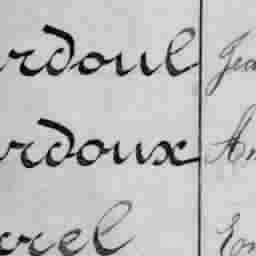 rdoul Jea
rdoux An
rrel Em